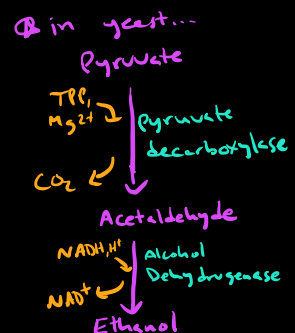 in yeast...
Pyruvate
TPP,
Mg2+
pyruvate
decarboxylase
CO2
Acetaldehyde
NADH, H+
Alcohol
Dehydrogenase
NAD+
Ethanol